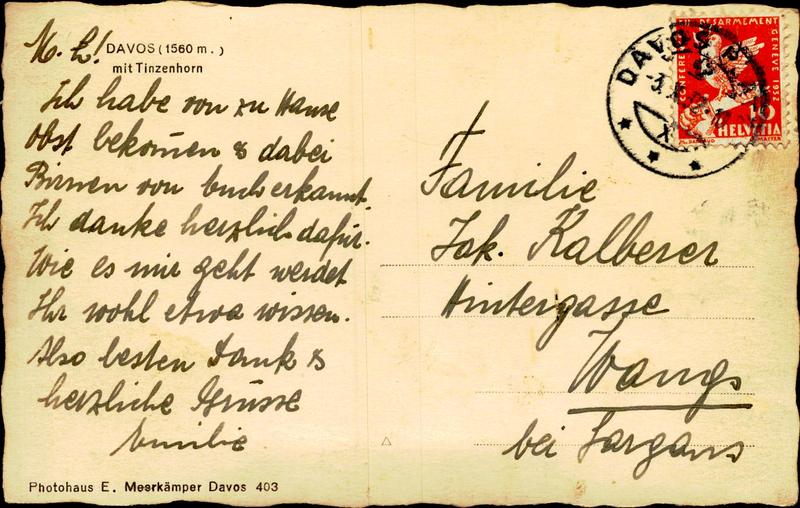 M. L!
DAVOS (1560 m.)
mit Tinzenhorn
Ich habe von zu Hause
Obst bekommen & dabei
Birnen von Euch erkannt.
Ich danke herzlich dafür.
Wie es mir geht werdet
Ihr wohl etwa wissen.
Also besten Dank &
herzliche Grüsse
Emilie
Photohaus E. Meerkämper Davos 403
DAVOS
CONFERENCE DU DESARMEMENT GENEVE 1932
10
HELVETIA
Familie
Jak. Kalberer
Hintergasse
Wangs
bei Sargans